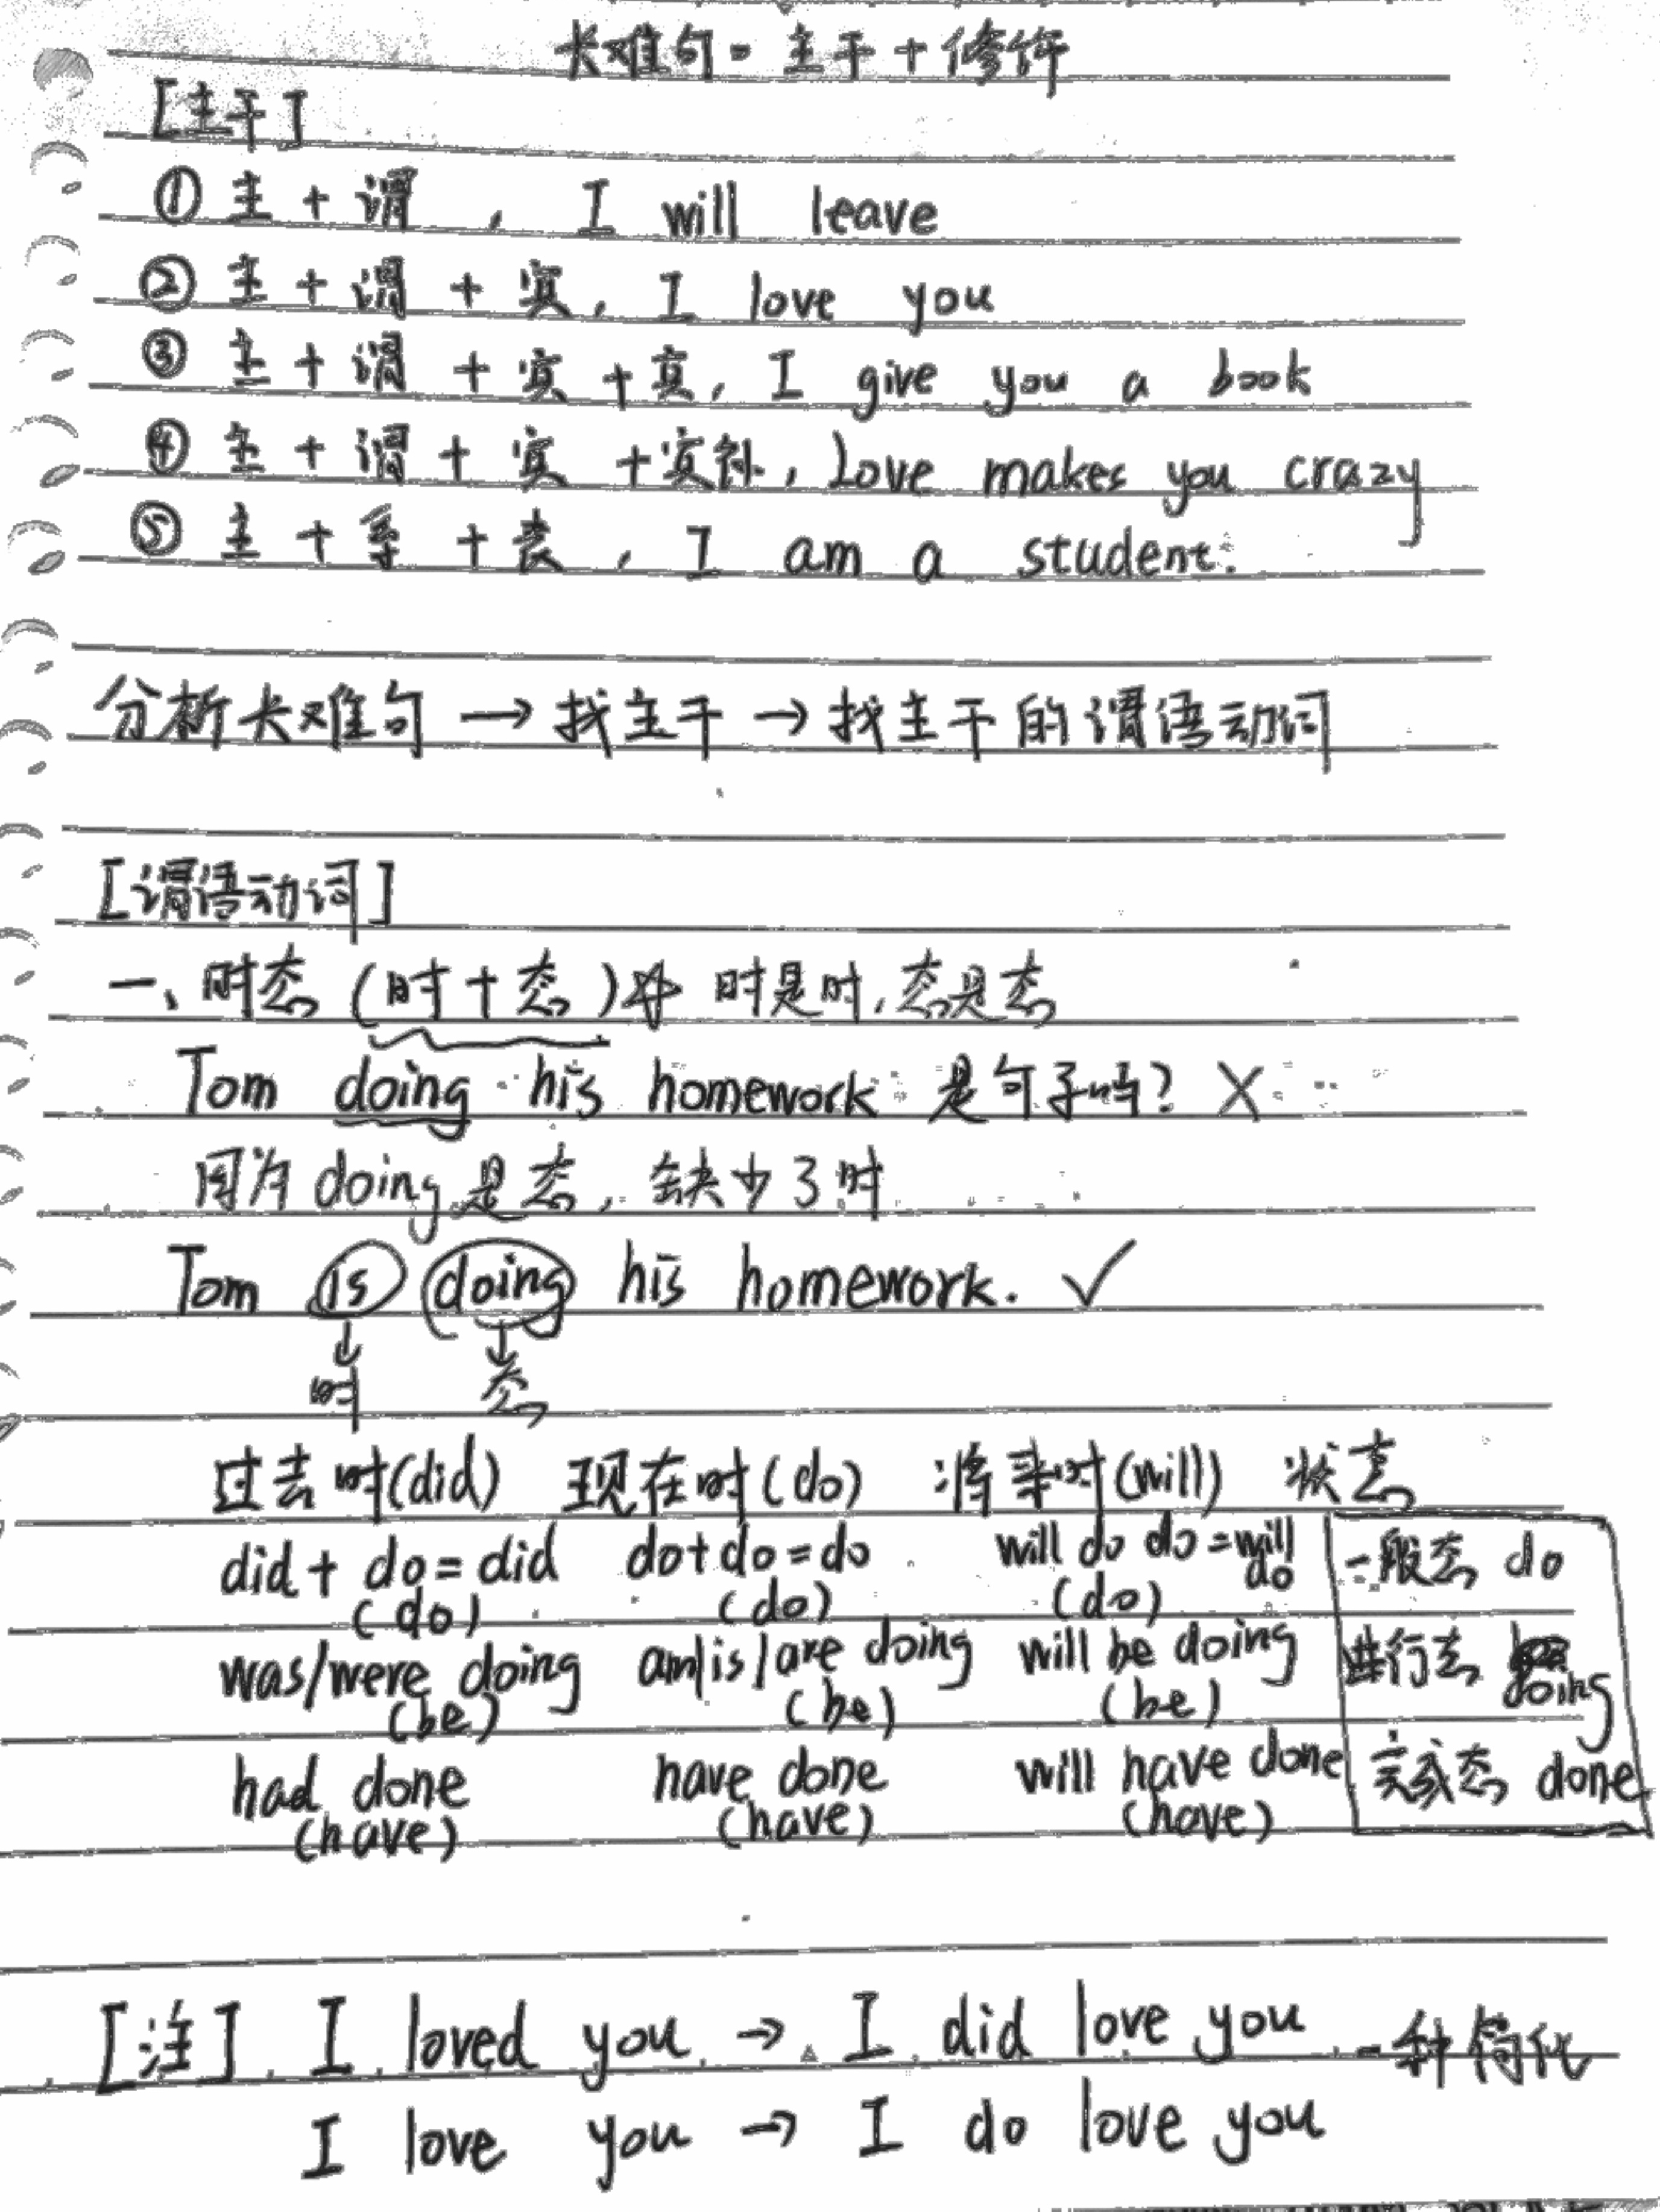 长难句 = 主干 + 修饰
[主干]
① 主 + 谓 , I will leave
② 主 + 谓 + 宾, I love you
③ 主 + 谓 + 宾 + 宾, I give you a book
④ 主 + 谓 + 宾 + 宾补, Love makes you crazy
⑤ 主 + 系 + 表 , I am a student.
分析长难句 → 找主干 → 找主干的谓语动词
[谓语动词]
一、时态 (时 + 态) ☆ 时是时, 态是态
Tom doing his homework 是句子吗? X
因为 doing 是态, 缺少了时
Tom is doing his homework. ✓
↓ ↓
时 态
过去时(did) 现在时(do) 将来时(will) 状态
did + do = did do + do = do will do do = will do 一般态 do
(do) (do) (do)
was/were doing am/is/are doing will be doing 进行态 doing
(be) (be) (be)
had done have done will have done 完成态 done
(have) (have) (have)
[注] I loved you → I did love you 一种简化
I love you → I do love you